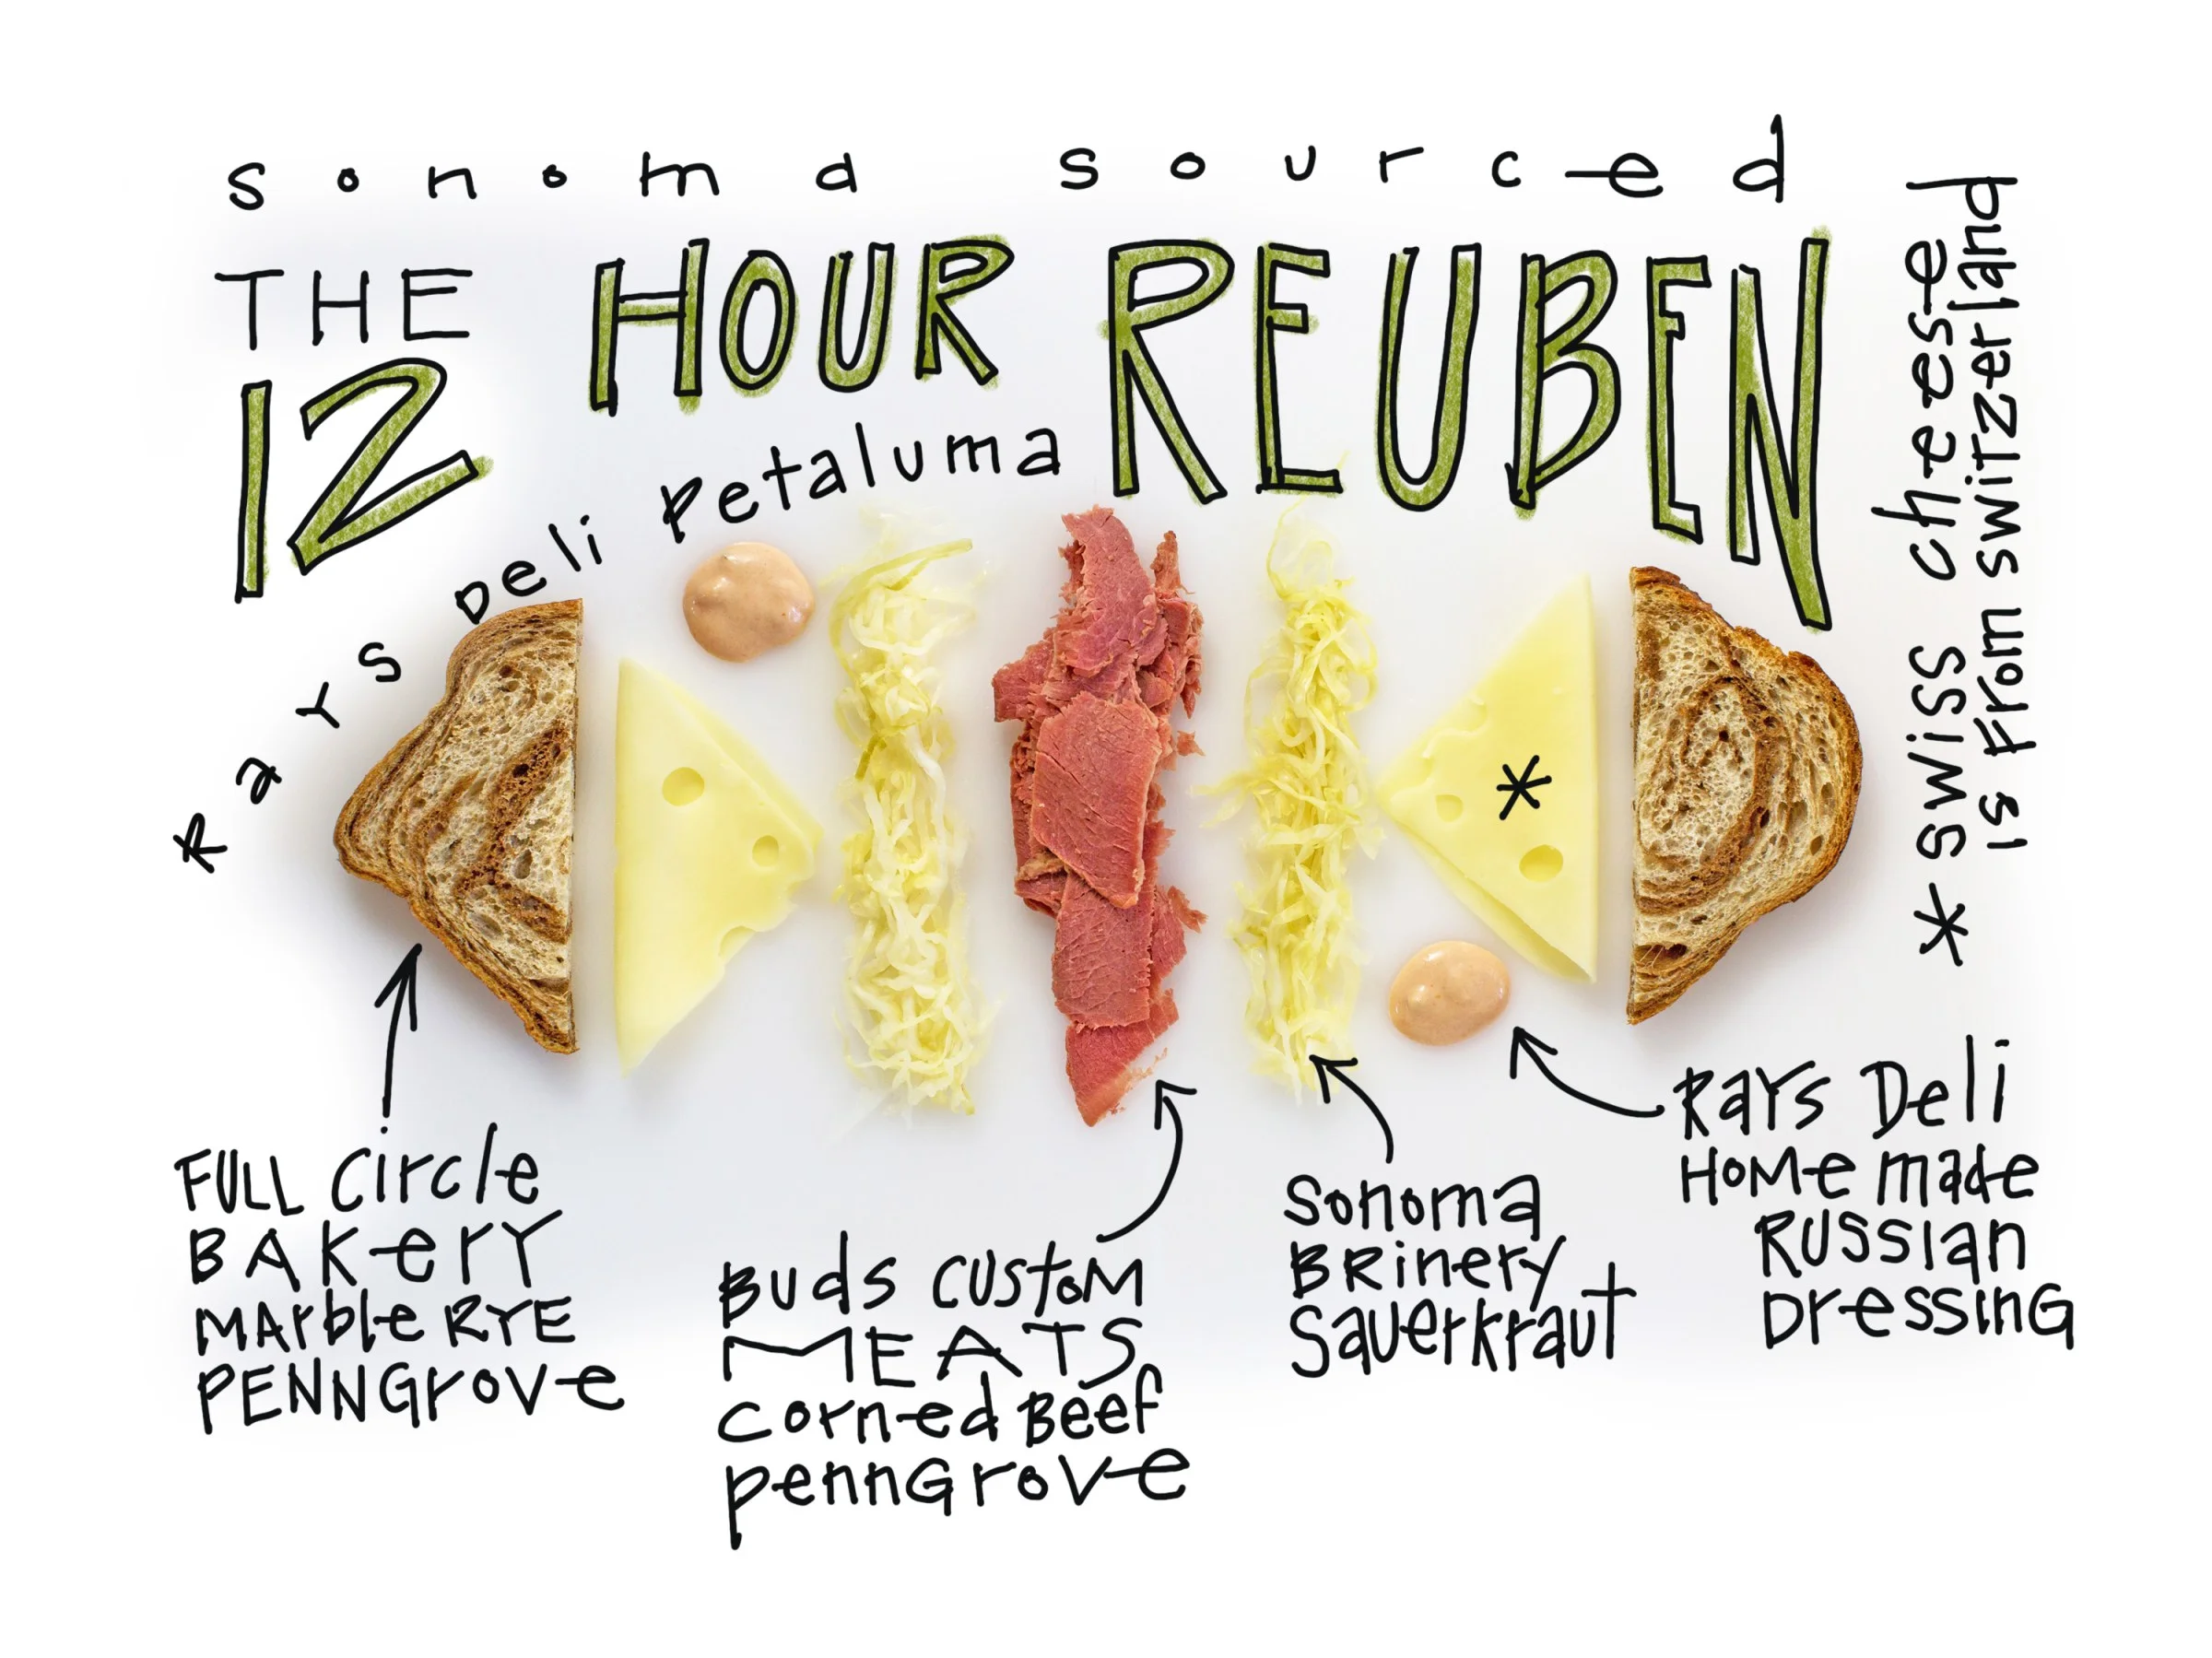 sonoma sourced
THE
12 HOUR REUBEN
Rays Deli Petaluma
* swiss cheese
is from switzerland
*
FULL circle
BAKerY
MArble RYE
PENNGrove
Buds custom
MEATS
corned Beef
pennGrove
Sonoma
BRinery
Sauerkraut
Rays Deli
HOMe made
RUSSian
DressinG